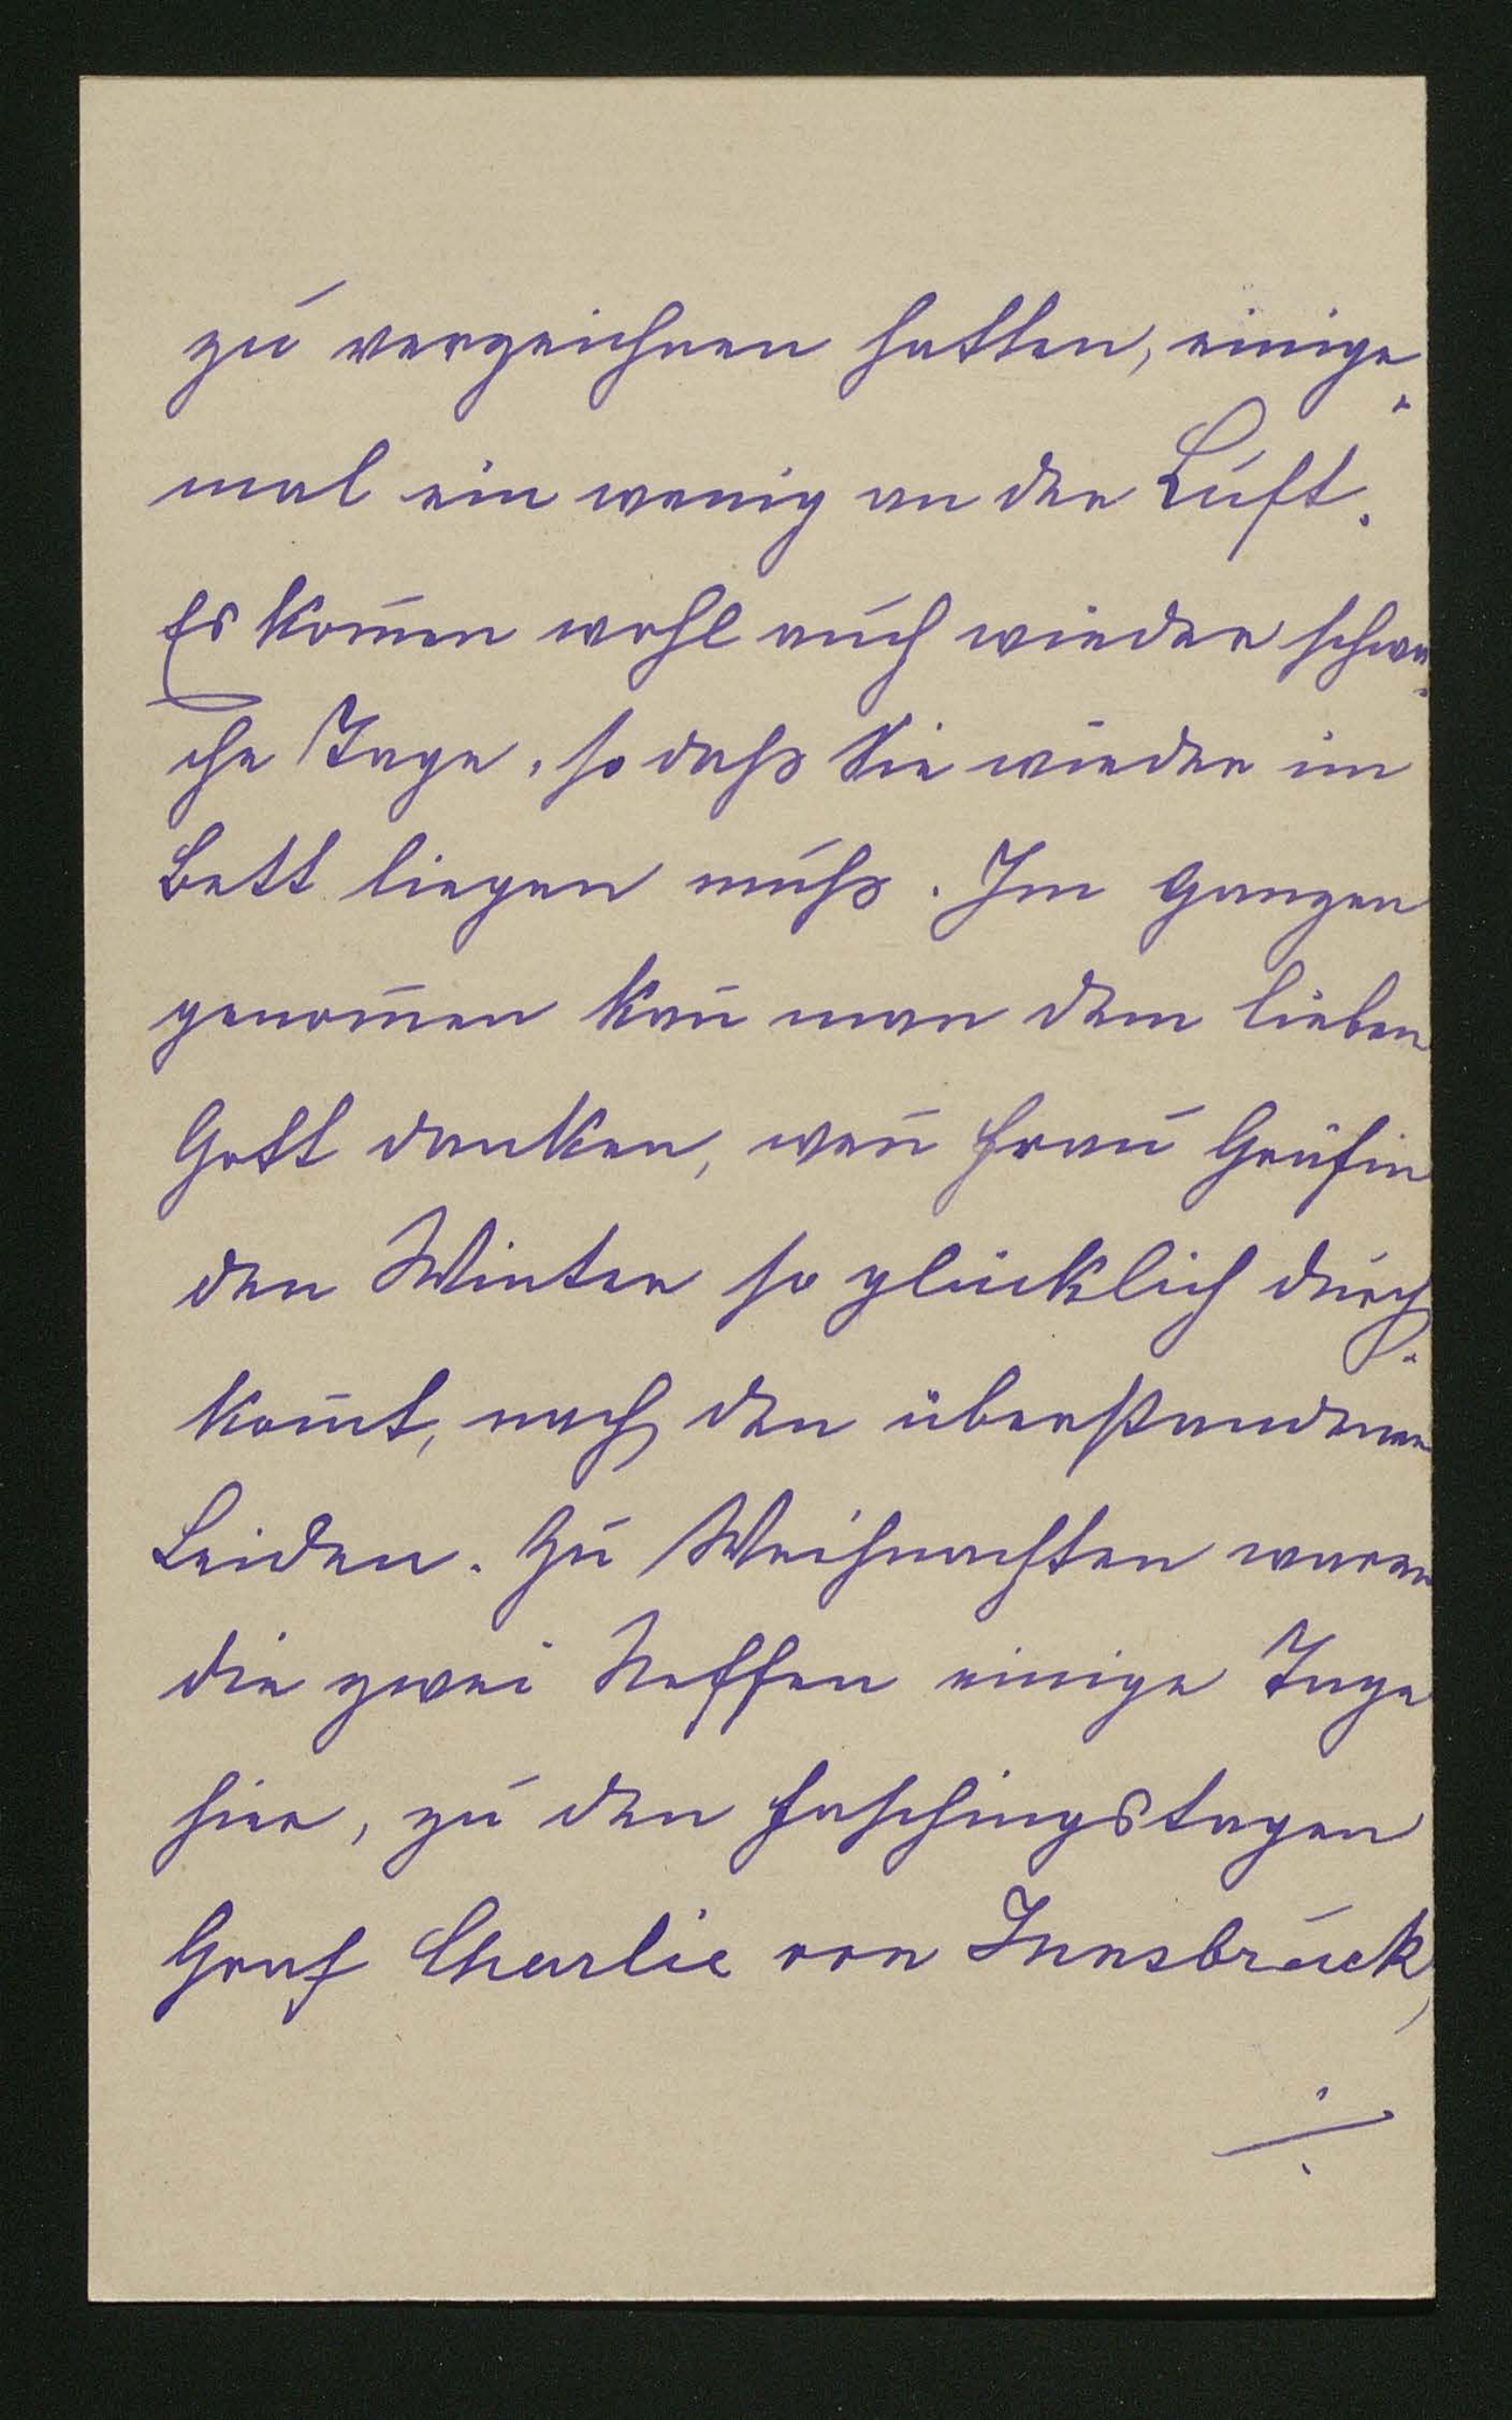 zu verzeichnen hatten, einige-
mal ein wenig an der Luft.
Es kom̄en wohl auch wieder schwa-
che Tage, so daß Sie wieder im
Bett liegen muß. Im Ganzen
genom̄en kan̄ man dem lieben
Gott danken, wen̄ Frau Gräfin
den Winter so glücklich durch-
kom̄t, nach den überstandenen
Leiden. Zu Weihnachten waren
die zwei Neffen einige Tage
hier, zu den Faschingstagen
Graf Charlie von Innsbruck,
./.